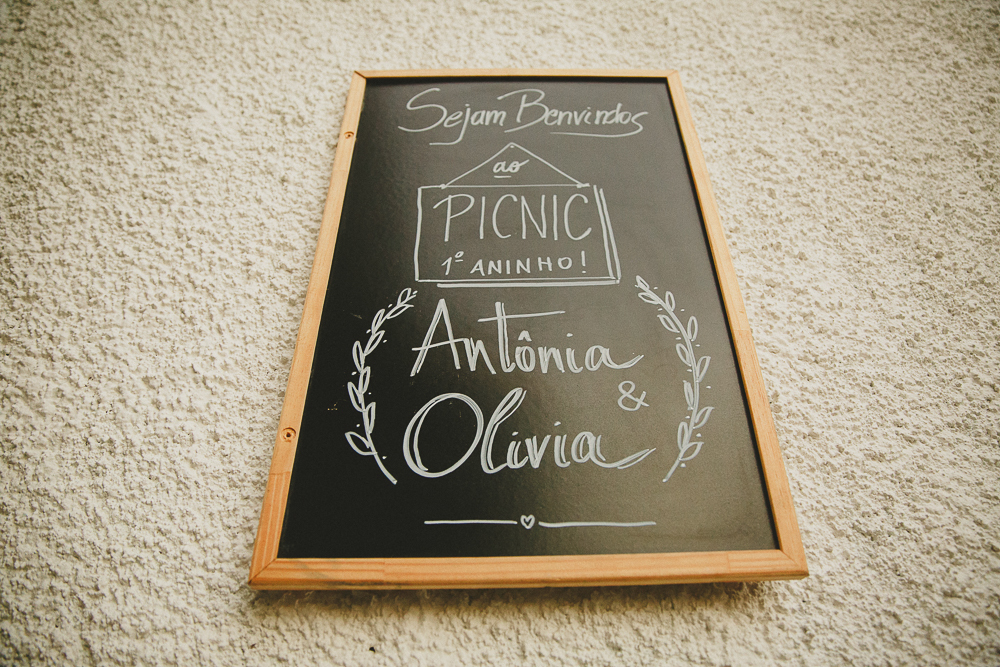 Sejam Benvindos
ao
PICNIC
1º ANINHO!
Antônia
&
Olivia